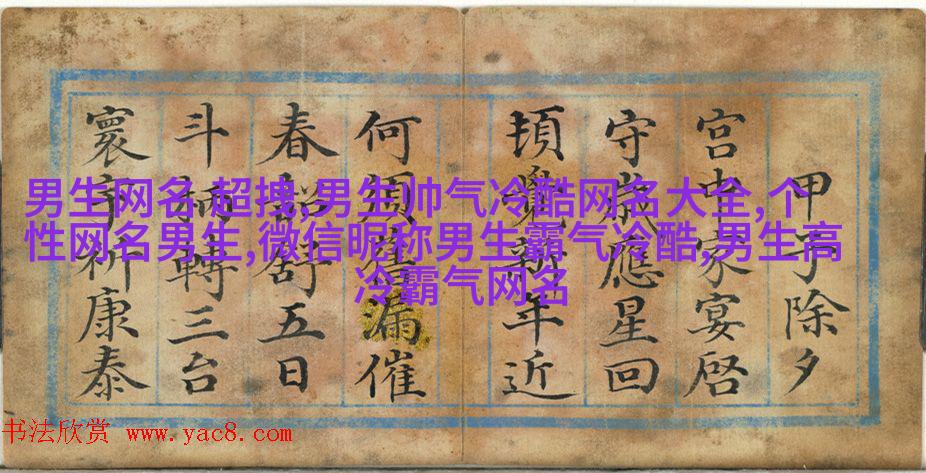 甲子除夕
宮中家宴啓
守歲應星回
新年近
何須蓮漏催
春韶舒五日
斗柄轉三台
寰宇祈康泰
男生网名 超拽,男生帅气冷酷网名大全,个
性网名男生,微信昵称男生霸气冷酷,男生高
冷霸气网名
书法欣赏 www.yac8.com